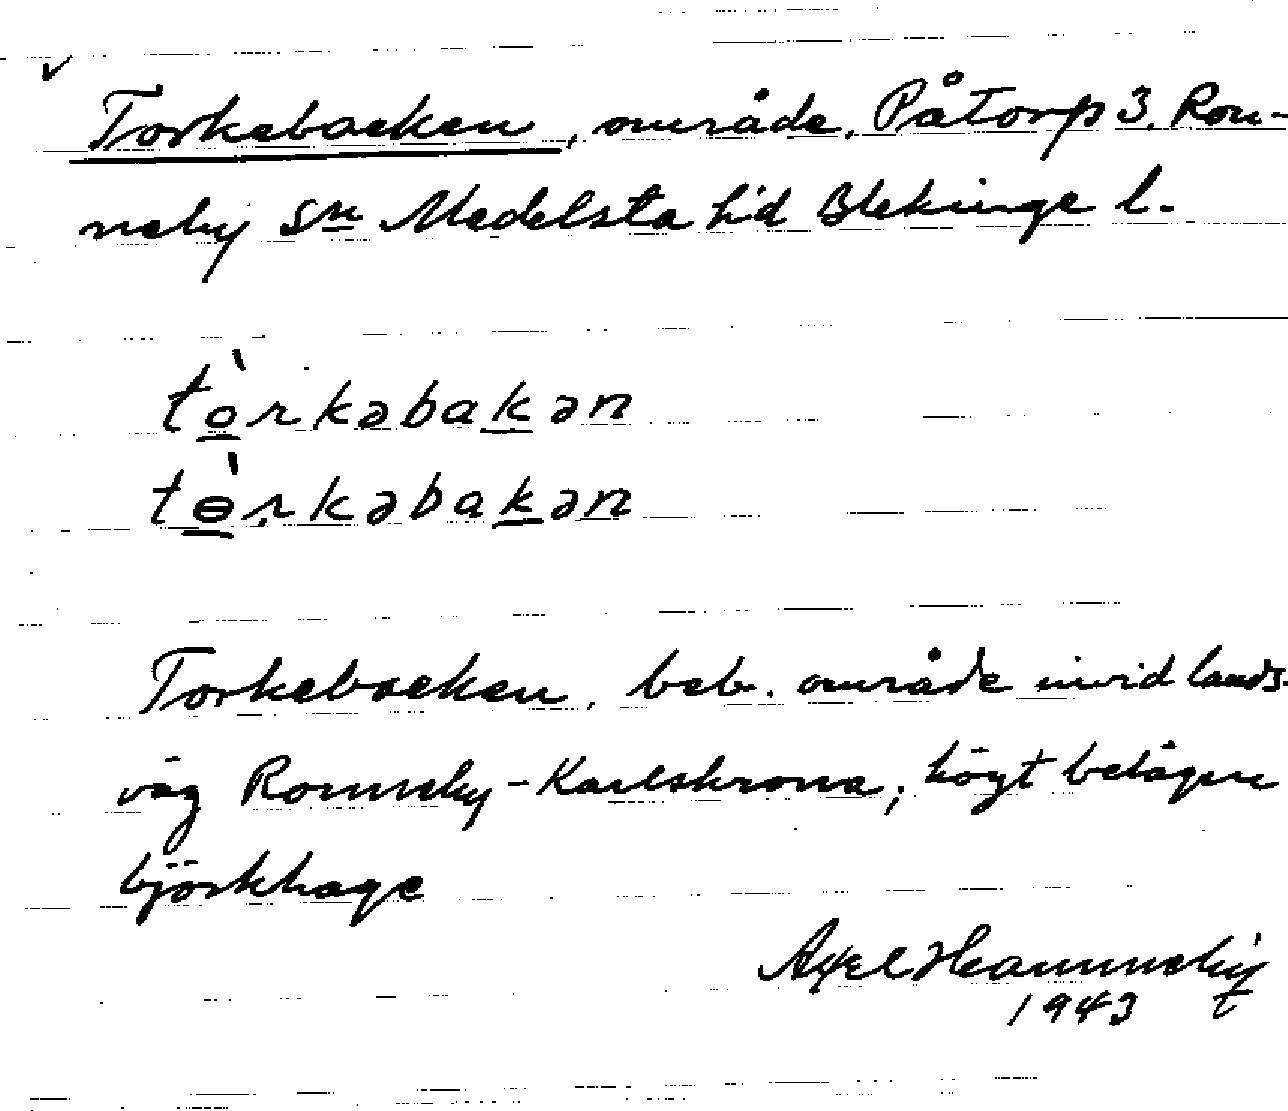 Torkebacken, område, Påtorp 3. Ron-
neby Sn Medelsta h:d Blekinge l.
tò̱rkəbaḵən
tɵ̱̀rkəbaḵən
Torkebacken, beb. område invid lands-
väg Ronneby-Karlskrona, högt belägen
björkhage
Axel Hammeby
1943 t